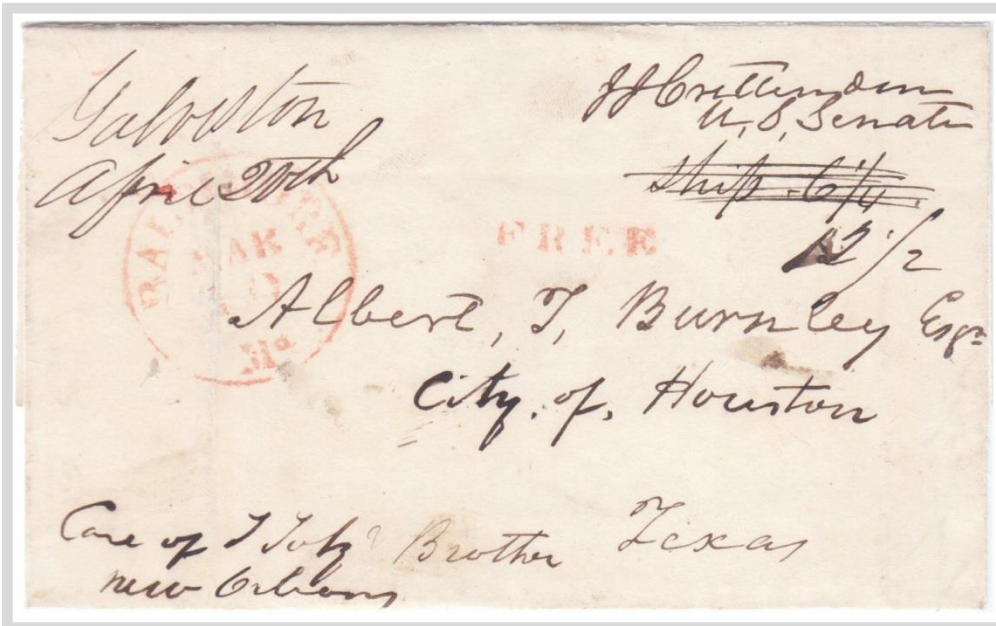 Galveston
April 20th
JJ Crittenden
U,S, Senate
Ship. 6/4
12 1/2
BALTIMORE
MAR
Md
FREE
Albert, T, Burnley Esqr
City. of. Houston
Texas
Care of T Brother
new Orleans